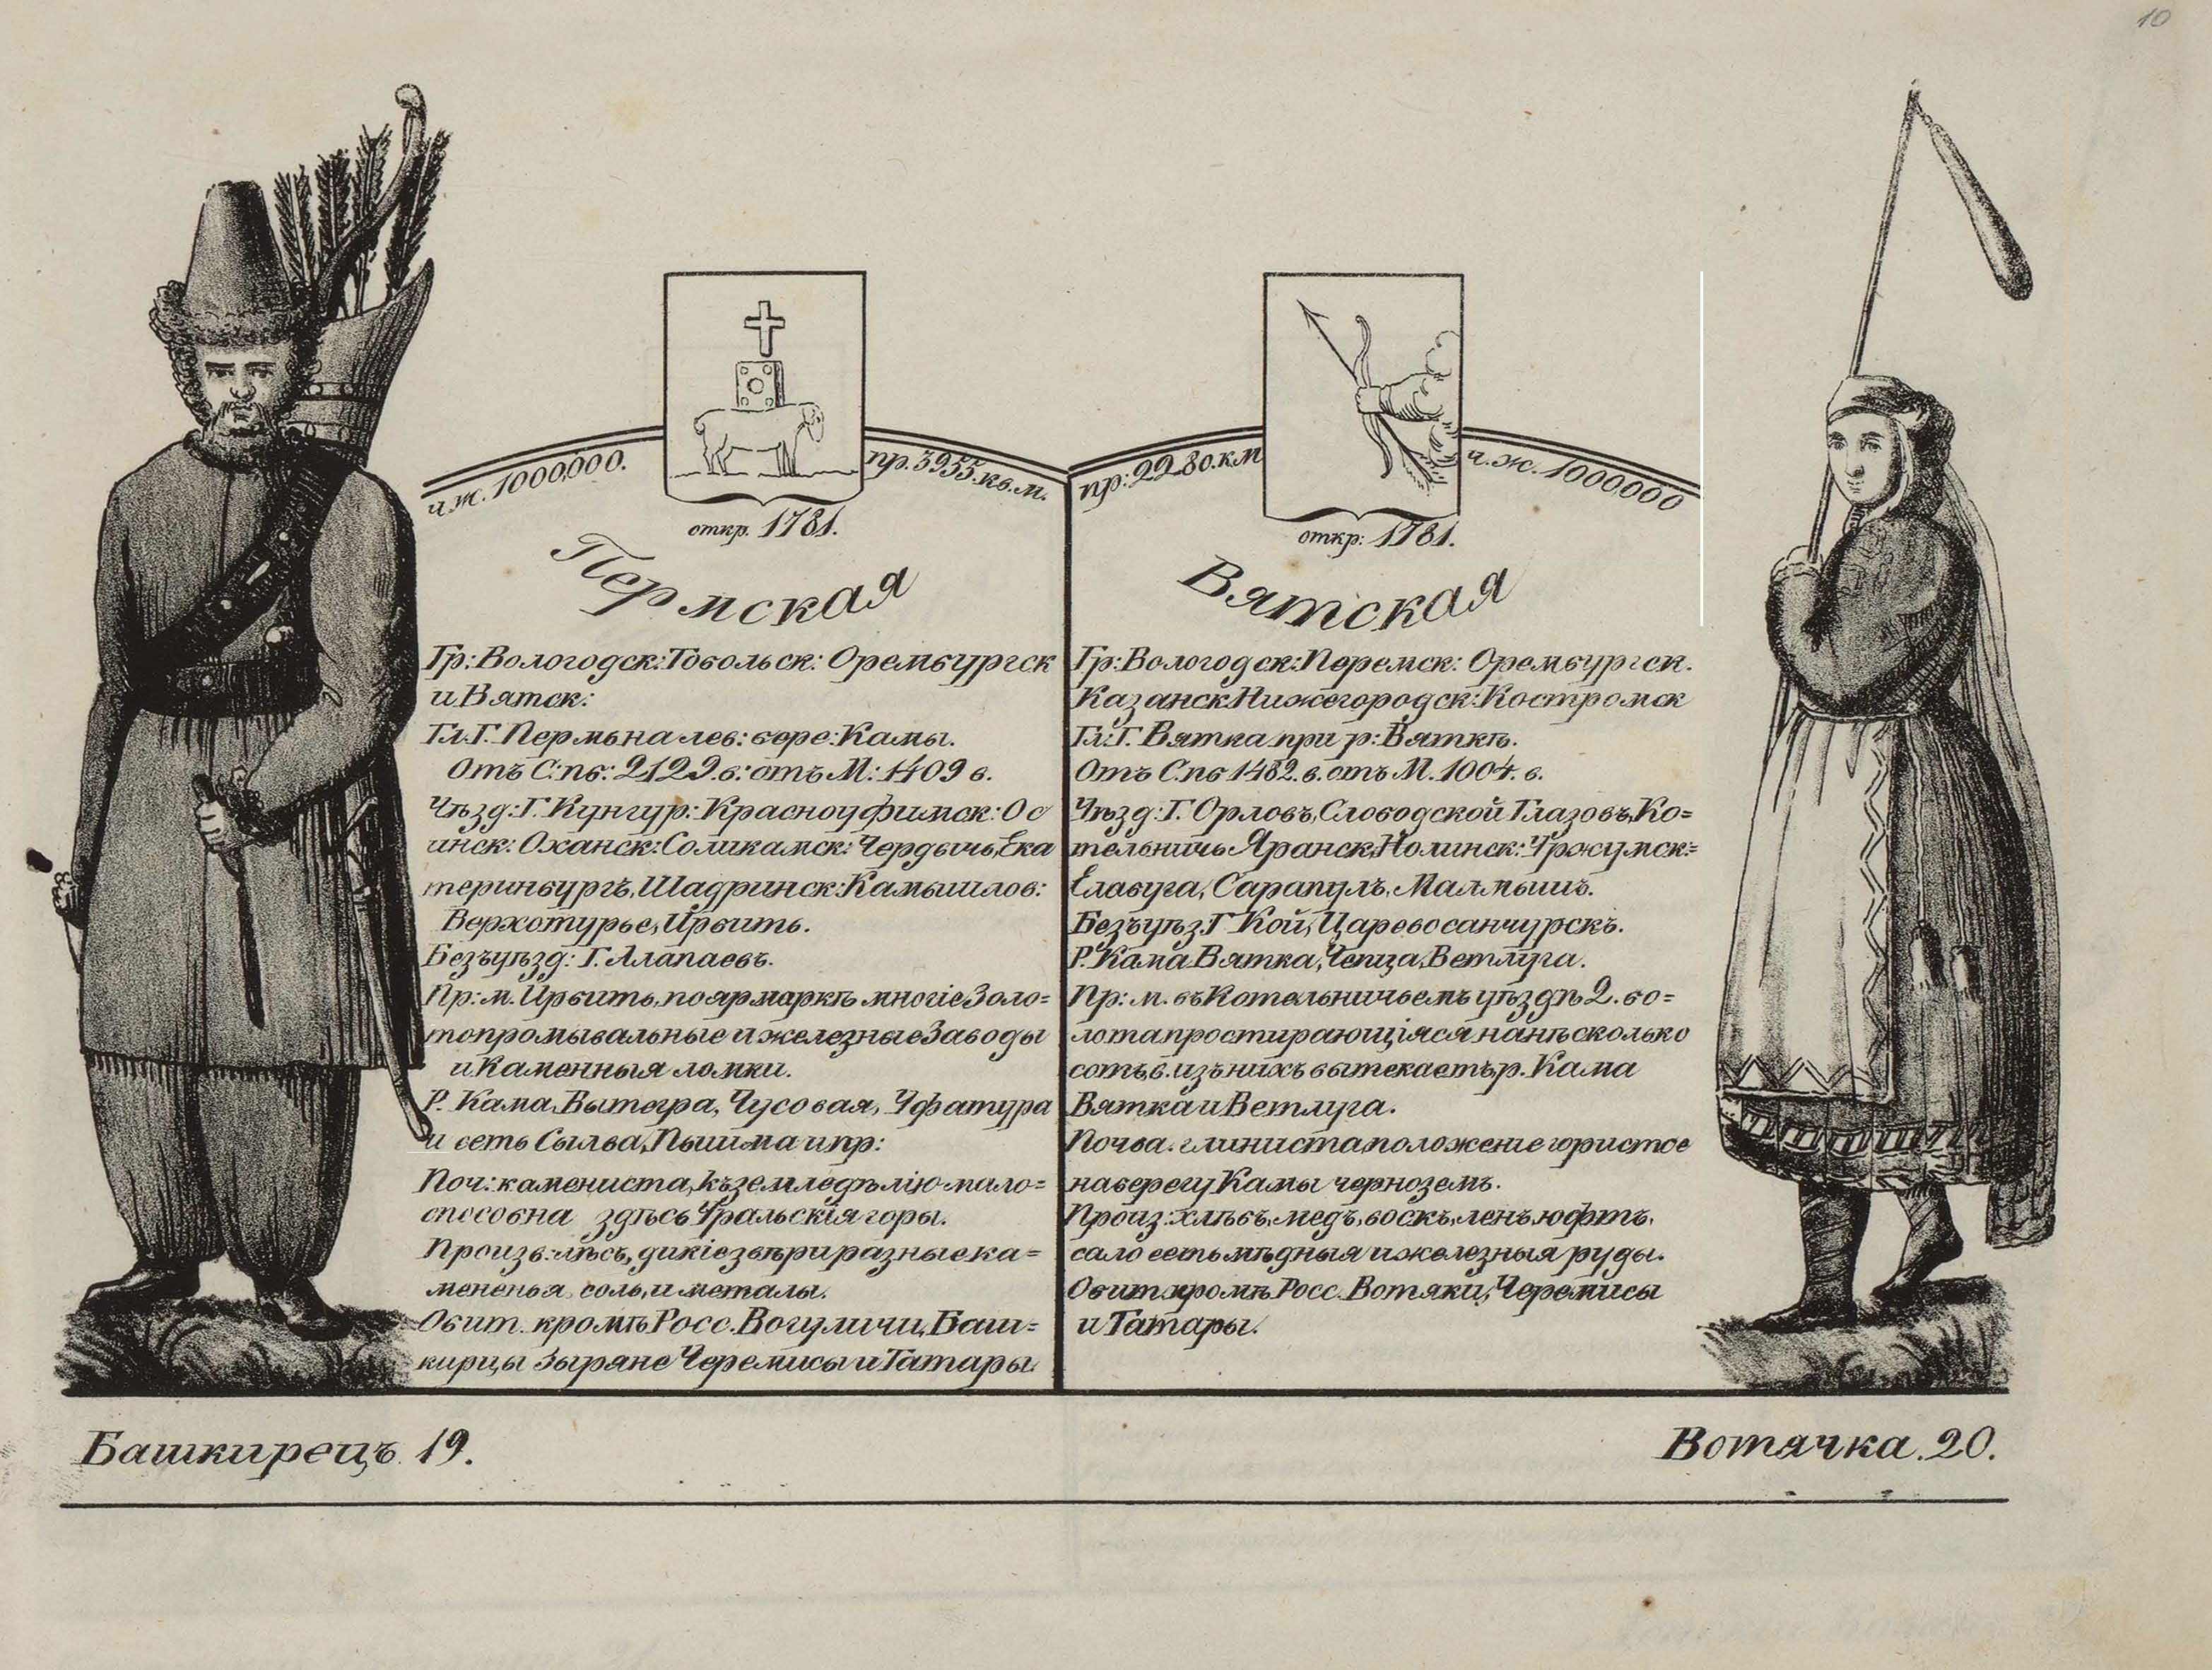 10
ч.ж. 1000,000.
пр. 3955. кв. м.
откр. 1781.
Пермская
Гр: Вологодск: Товольск: Оремвургск
и Вятск:
Гл. Г. Пермь на лев: вере: Камы.
Отъ С: пв: 2129. в: отъ М: 1409 в.
Уѣзд: Г. Кунгур: Красноуфимск: Ос
инск: Оханск: Соликамск: Чердычь, Ека
теринвургъ, Шадринск: Камышлов:
Верхотурье, Ирвить.
Безъуѣзд: Г. Алапаевъ.
Пр: м. Ирвить, по ярмаркѣ многіе Золо=
топромывальные и железные Заводы
и Каменныя ломки.
Р. Кама, Вытегра, Чусовая, Уфатура
и сеть Сылва, Пышма и пр:
Поч: камениста, къ земледѣлію мало=
способна здѣсь Уральскія горы.
Произв: лѣсъ, дикіе звѣри разные ка=
мененья, соль, и металы.
Овит. кромѣ Росс. Вогуличи, Баш=
кирцы Зыряне Черемисы и Татары.
пр: 2280. км
ч. ж. 1000,000
откр: 1781.
Вятская
Гр: Вологодск: Перемск: Оремвургск.
Казанск Нижегородск: Костромск
Гл: Г. Вятка при р: Вяткѣ.
Отъ С. пв 1482. в. отъ М. 1004. в.
Уѣзд: Г. Орловъ, Слободской Глазовъ, Ко=
тельничь Яранск, Нолинск: Уржумск:=
Елавуга, Сарапулъ, Малмышъ.
Безъуѣз. Г Кой, Царевосанчурскъ.
Р. Кама Вятка, Чепца, Ветлуга.
Пр: м. въ Котельничьемъ уѣздѣ 2. во=
лота простирающіяся на нѣсколько
сотъ в. изъ нихъ вытекаетъ р. Кама
Вятка и Ветлуга.
Почва. глиниста положеніе гористое
на верегу Камы черноземъ.
Произ: хлѣвъ, медъ, воскъ, ленъ, юфть,
сало есть мѣдныя и железныя руды.
Овит кромѣ Росс. Вотяки, Черемисы
и Татары.
Башкирецъ 19.
Вотячка. 20.